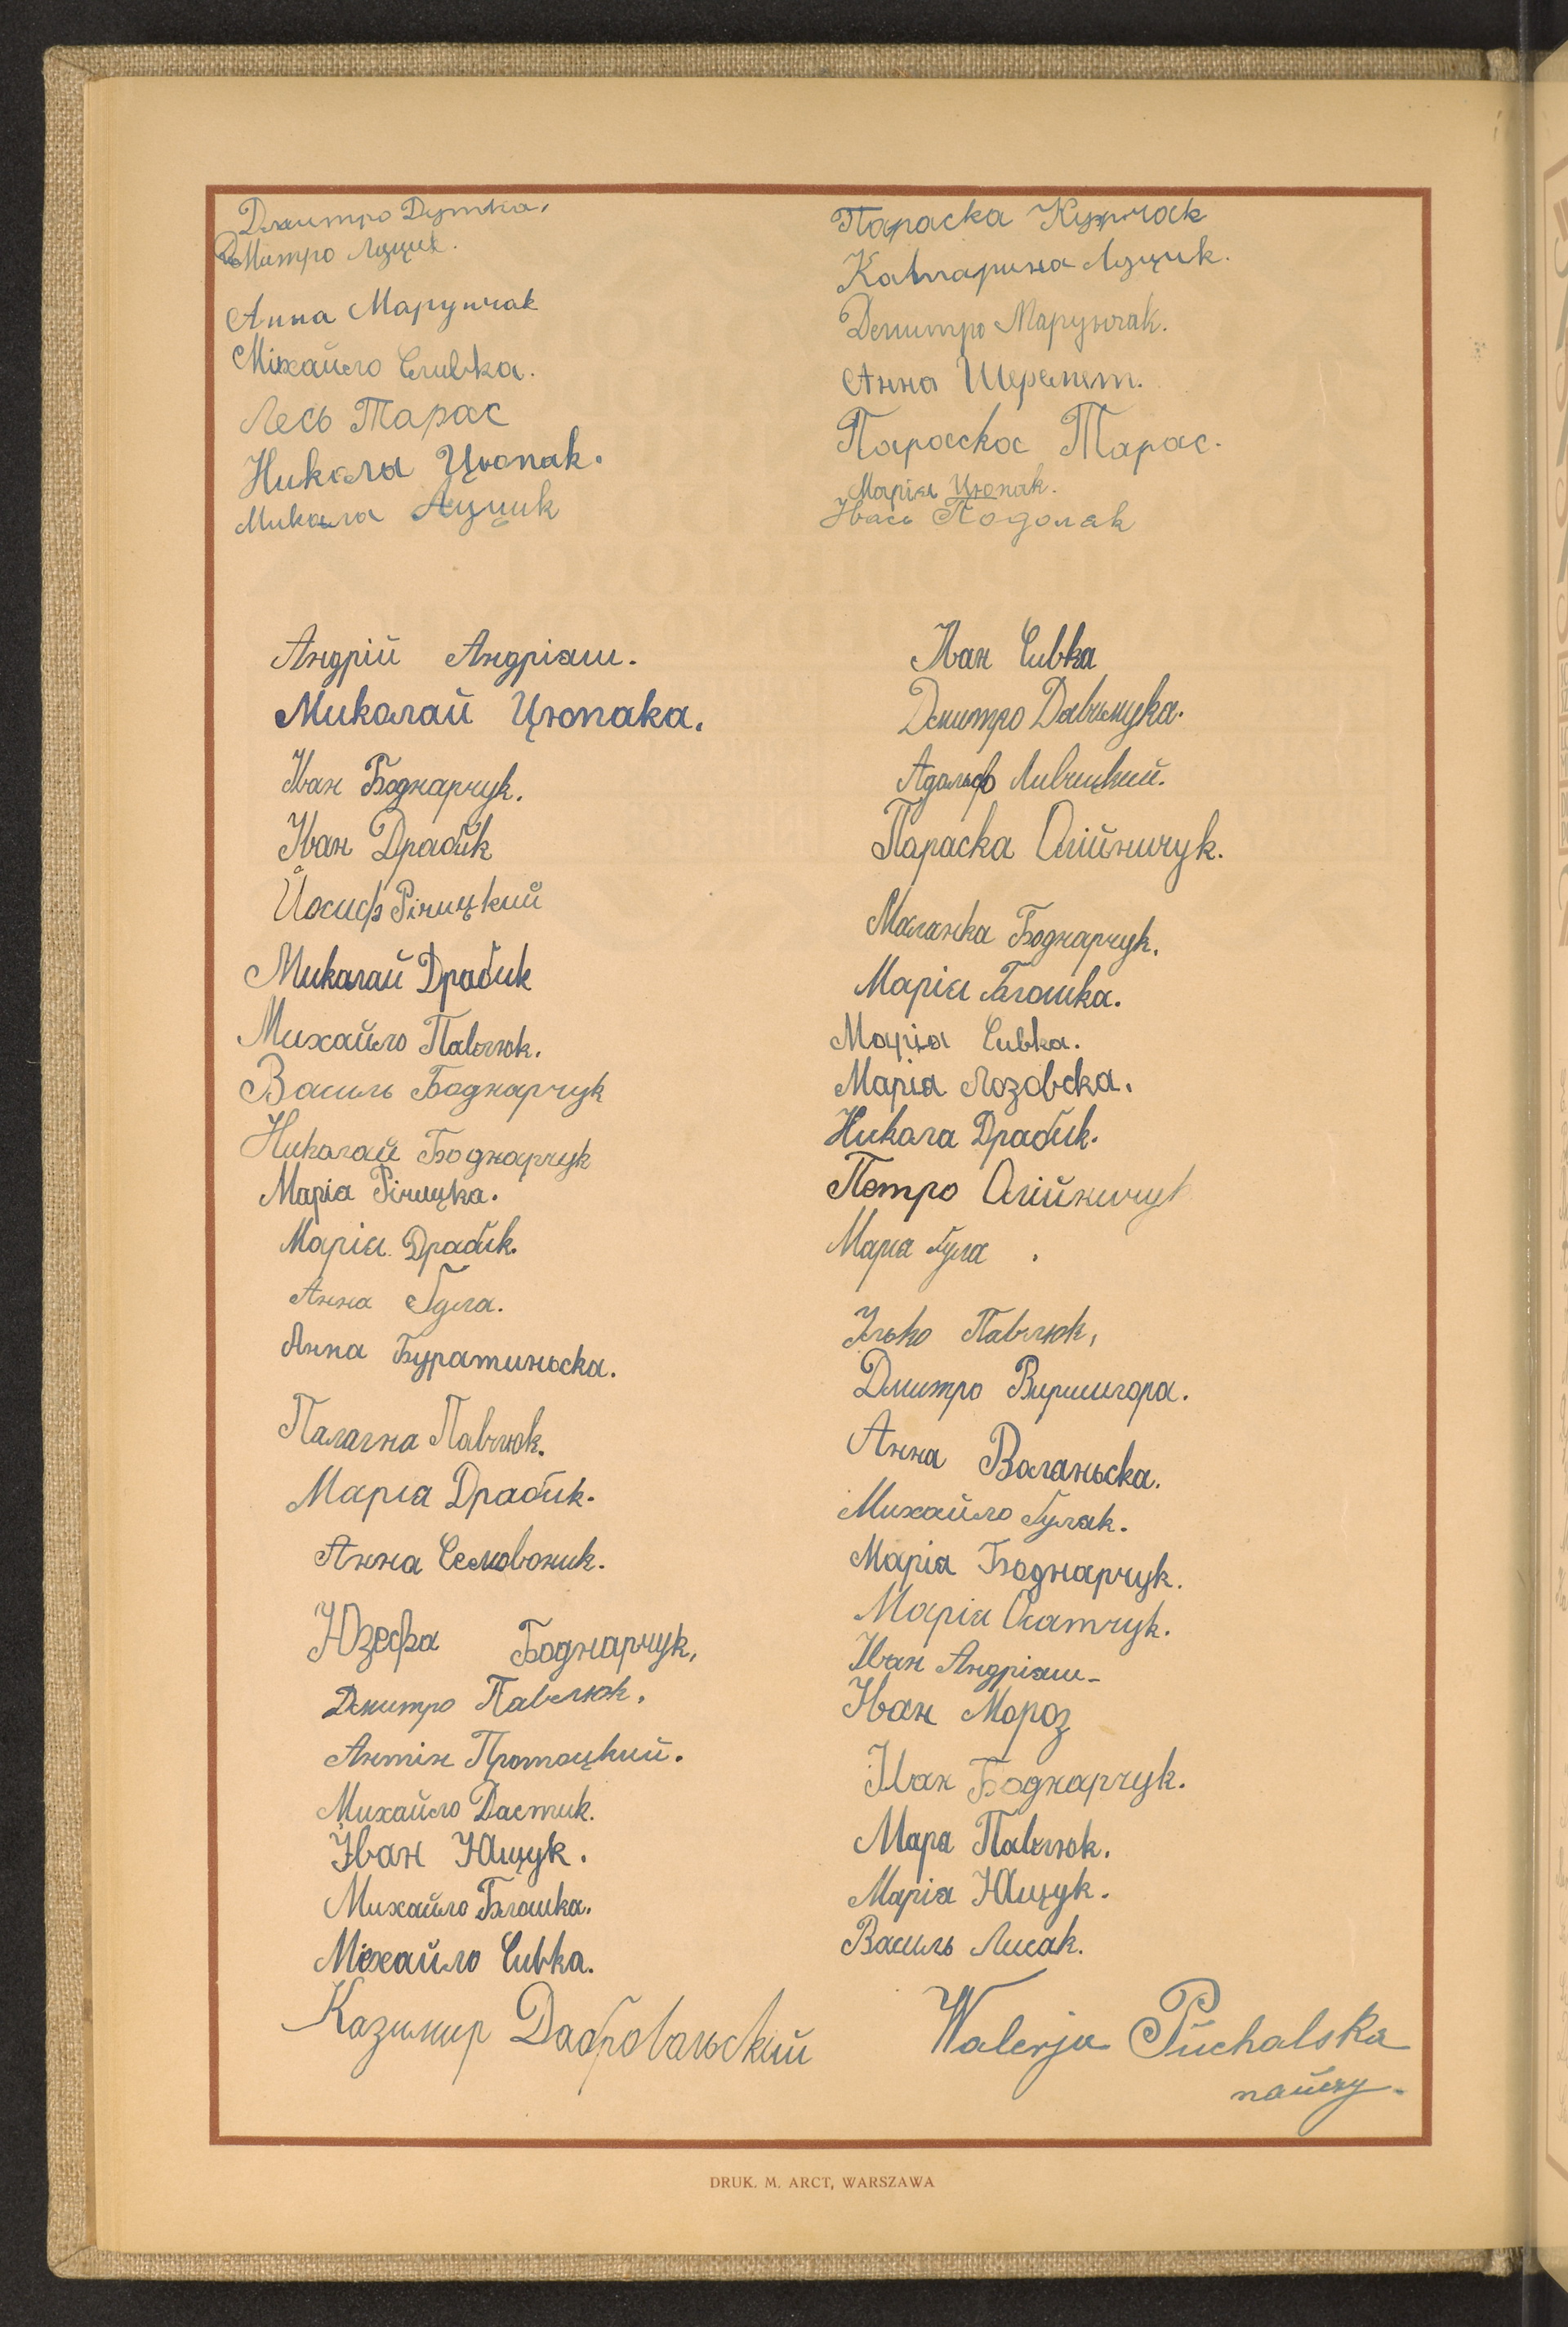 Дмитро Дутка.
Дмитро Луцик.
Анна Марунчак
Міхайло Сливка.
Лесь Тарас
Никола Цюпак.
Микола Луцик
Параска
Катарина Луцик.
Дмитро Марунчак.
Анна Шеремет.
Параска Тарас.
Марія Цюпак.
Івась Подолак
Андрій Андріяш.
Миколай Цюпака.
Іван Боднарчук.
Іван Драбик
Йосиф Річицкий
Миколай Драбик
Михайло Павлюк.
Василь Боднарчук
Николай Боднарчук
Маріа Річицка.
Марія Драбик.
Анна Гула.
Анна Буратиньска.
Палагна Павлюк.
Маріа Драбик.
Анна Семовоник.
Юзефа Боднарчук,
Дмитро Павлюк.
Антін Протоцкий.
Михайло Дастик.
Іван Ющук.
Михайло Блошка.
Міхайло Сивка.
Казимир Добровольский
Іван Сивка
Дмитро
Адольф Ливчицкий.
Параска Олійничук.
Маланка Боднарчук.
Марія Блошка.
Маріа Сивка.
Маріа Лозовска.
Никола Драбик.
Петро Олійничук
Маріа Гула.
Ілько Павлюк,
Дмитро Виршигора.
Анна Воланьска.
Михайло Гулак.
Маріа Боднарчук.
Марія Осатчук.
Іван Андріяш
Іван Мороз
Іван Боднарчук.
Мара Павлюк.
Маріа Ющук.
Василь Лисак.
Walerja Puchalska
naucz.
DRUK. M. ARCT, WARSZAWA